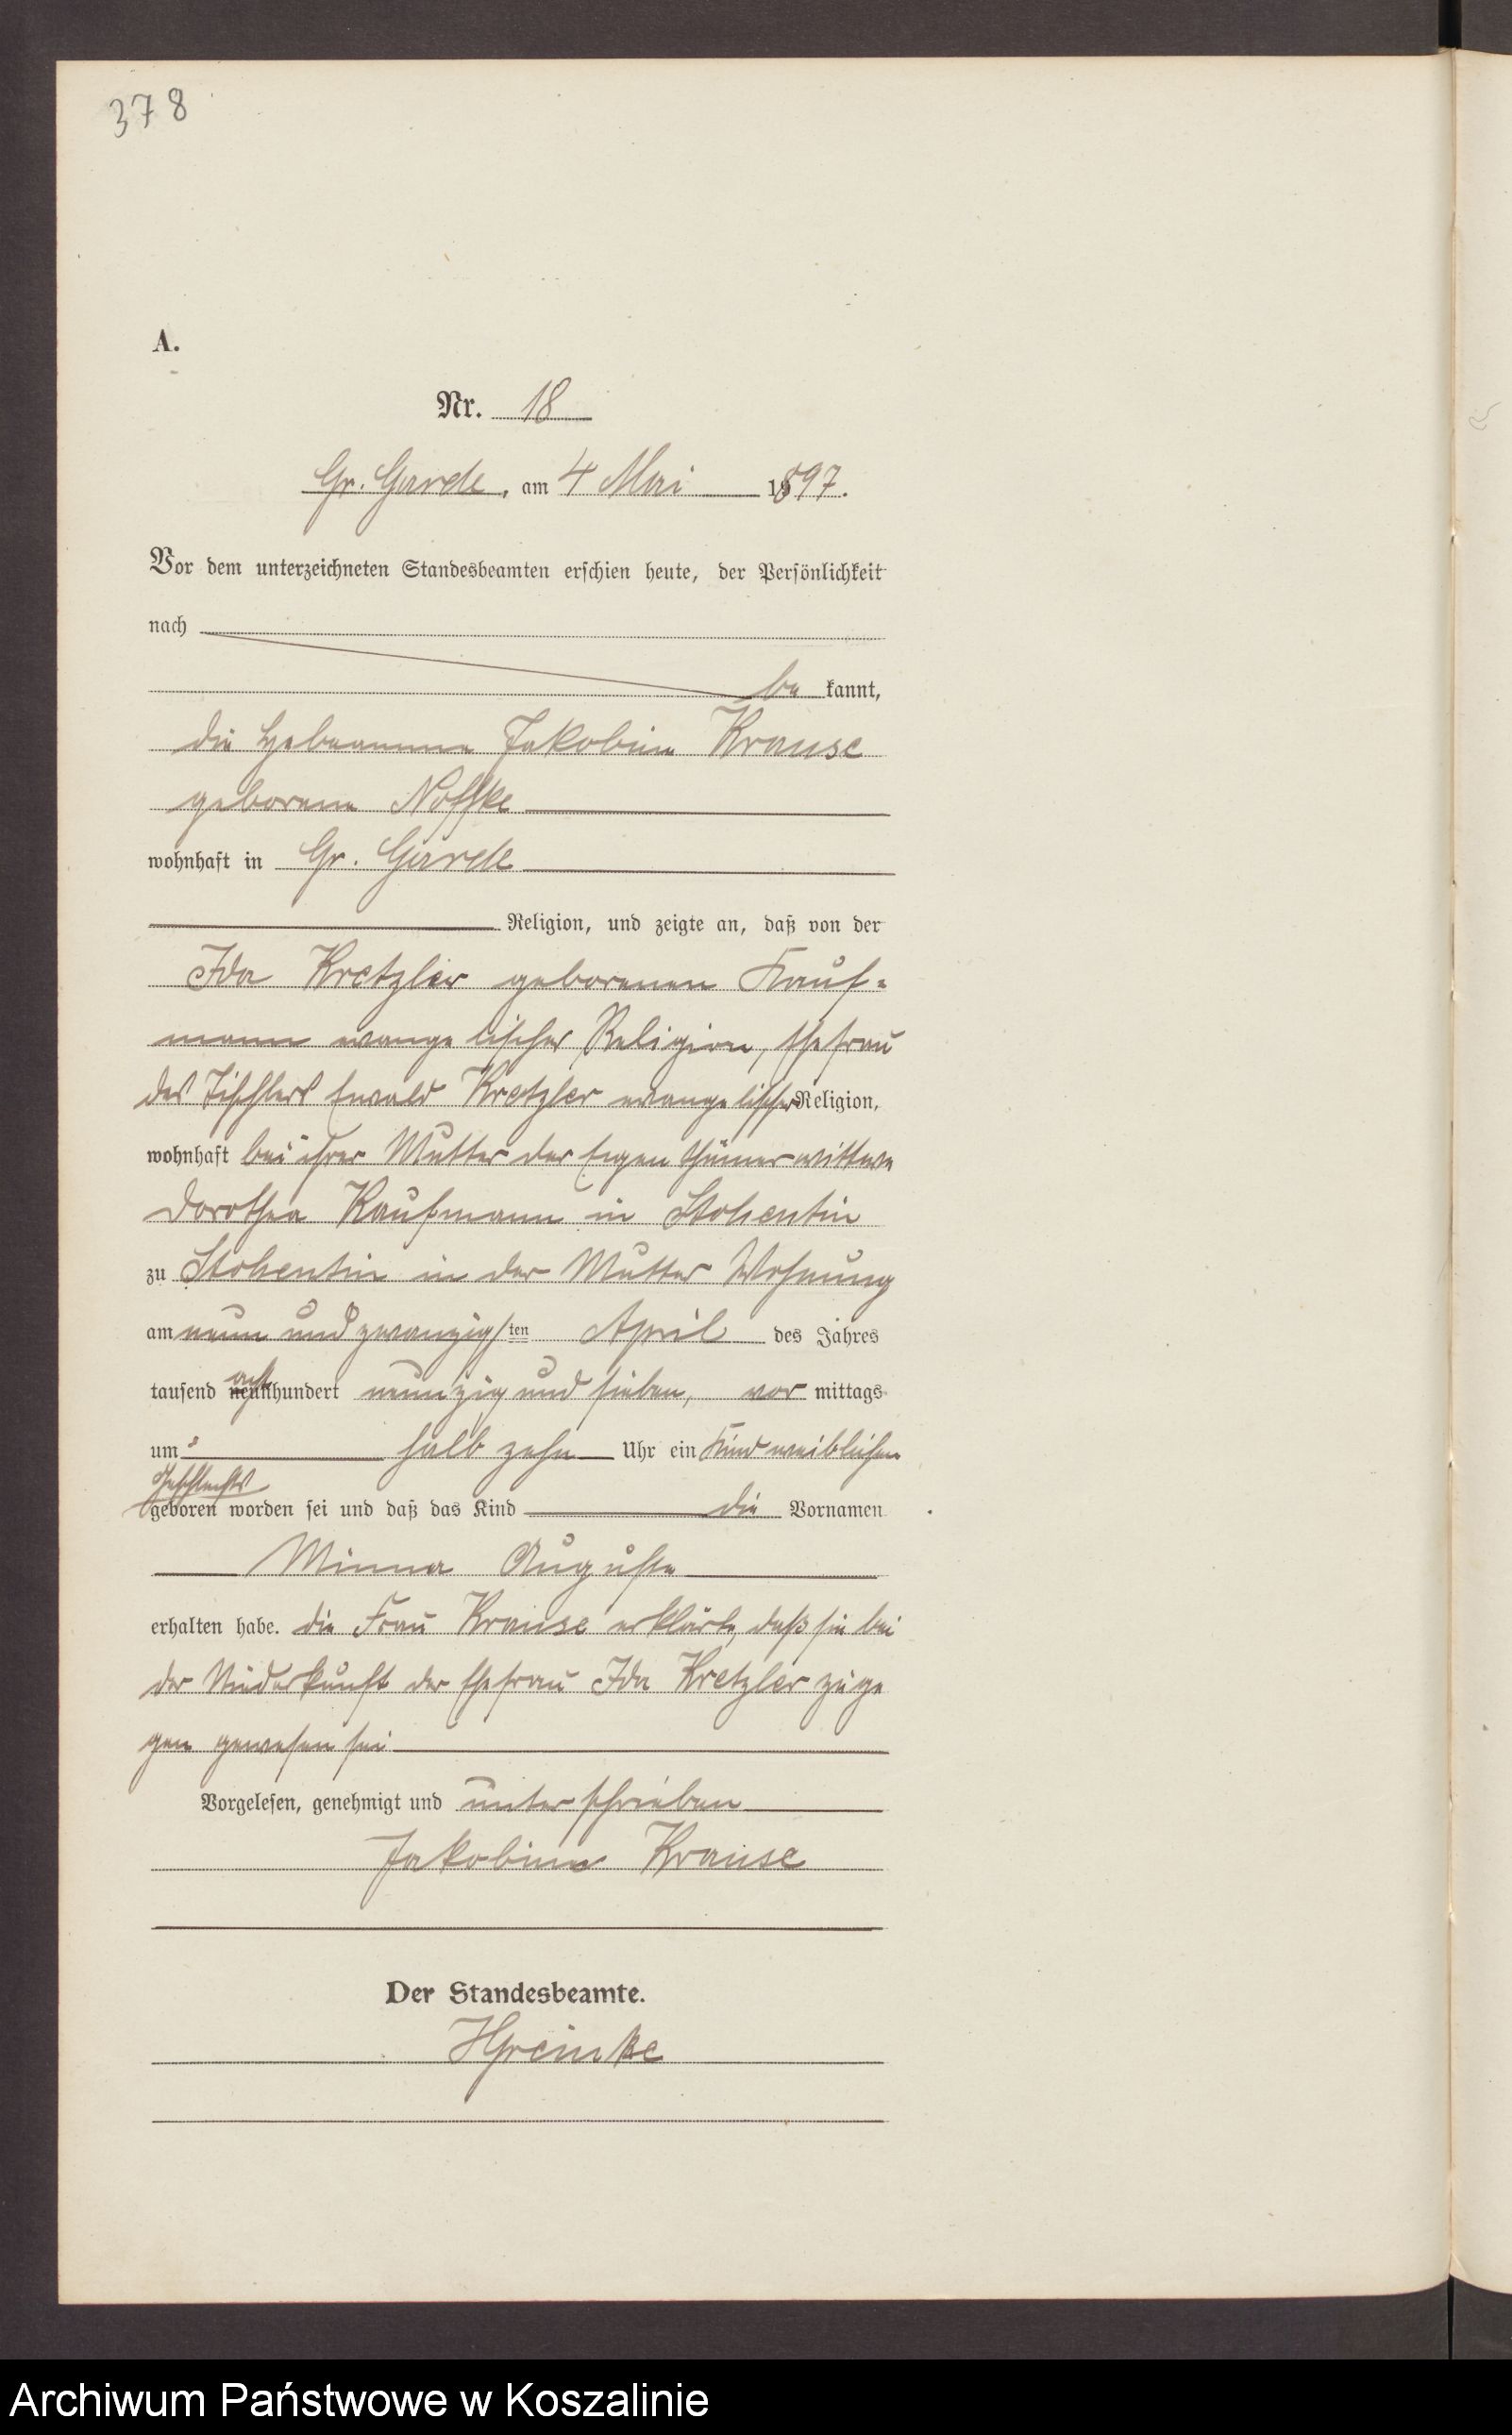 378
A.
Nr. 18
Gr. Garde, am 4 Mai 1897.
Vor dem unterzeichneten Standesbeamten erschien heute, der Persönlichkeit
nach
be kannt,
die Hebeamme Jakobine Krause
geborene Noffke
wohnhaft in Gr. Garde
Religion, und zeigte an, daß von der
Ida Kretzler geborenen Kauf-
mann evangelischer Religion, Ehefrau
des Tischlers Ewald Kretzler evangelischer Religion,
wohnhaft bei ihrer Mutter der Eigenthümerwittwe
Dorothea Kaufmann in Stohentin
zu Stohentin in der Mutter Wohnung
am neun und zwanzigsten April des Jahres
tausend neunhundert acht neunzig und sieben, vor mittags
um halb zehn Uhr ein Kind weiblichen
Geschlechts
geboren worden sei und daß das Kind die Vornamen
Minna Auguste
erhalten habe. die Frau Krause erklärte, daß sie bei
der Niederkunft der Ehefrau Ida Kretzler zuge
gen gewesen sei
Vorgelesen, genehmigt und unterschrieben
Jakobine Krause
Der Standesbeamte.
HGreinke
Archiwum Państwowe w Koszalinie